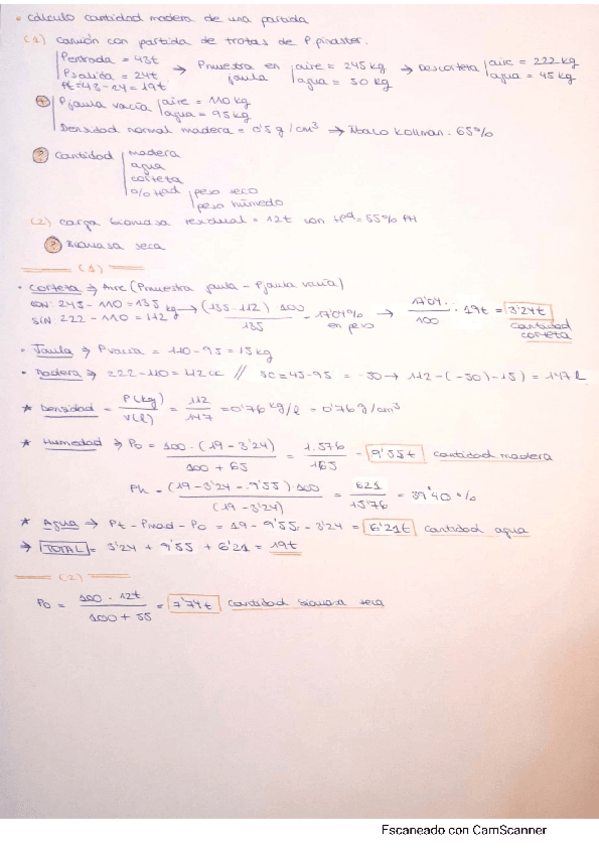 • Cálculo cantidad madera de una partida
(1) Camión con partida de trozas de P pinaster.
Pentrada = 43t
Psalida = 24t
Pt = 43 - 24 = 19t
→ Pmuestra en jaula
aire = 245 kg
agua = 50 kg
→ Descorteza
aire = 222 kg
agua = 45 kg
+ Pjaula vacía
aire = 110 kg
agua = 95 kg
Densidad normal madera = 0'5 g/cm³ → Kollman: 65%
? Cantidad
madera
agua
corteza
% Hdad
peso seco
peso húmedo
(2) Carga biomasa residual = 12t con 55% PH
? Biomasa seca
(1)
• Corteza ⇒ Aire (Pmuestra jaula - Pjaula vacía)
CON: 245 - 110 = 135 kg
SIN: 222 - 110 = 112 kg
→ (135 - 112) 100 / 135 = 17'04% en peso → 17'04.. / 100 · 19t = 3'24t
cantidad corteza
• Jaula ⇒ Pvacía = 110 - 95 = 15 kg
• Madera ⇒ 222 - 110 = 112 // 45 - 95 = -50 → 112 - (-50) - 15) = 147 l
* Densidad = P(kg) / V(l) = 112 / 147 = 0'76 kg/l = 0'76 g/cm³
* Humedad ⇒ P0 = 100 · (19 - 3'24) / 100 + 65 = 1.576 / 165 = 9'55t cantidad madera
Ph = (19 - 3'24 - 9'55) · 100 / (19 - 3'24) = 621 / 15'76 = 39'40 %
* Agua ⇒ Pt - Pmad - P0 = 19 - 9'55 - 3'24 = 6'21t cantidad agua
→ TOTAL = 3'24 + 9'55 + 6'21 = 19t
(2)
P0 = 100 · 12t / 100 + 55 = 7'74t cantidad biomasa seca
Escaneado con CamScanner